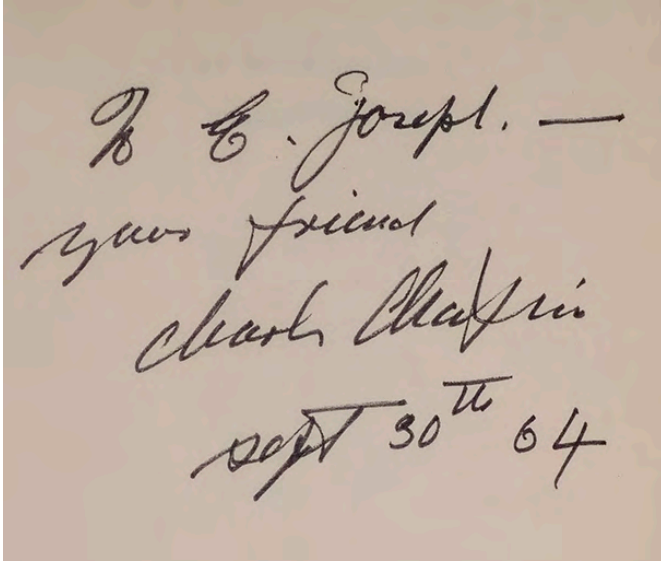 To E. Joseph. —
your friend
Charles Chaplin
sept 30th 64